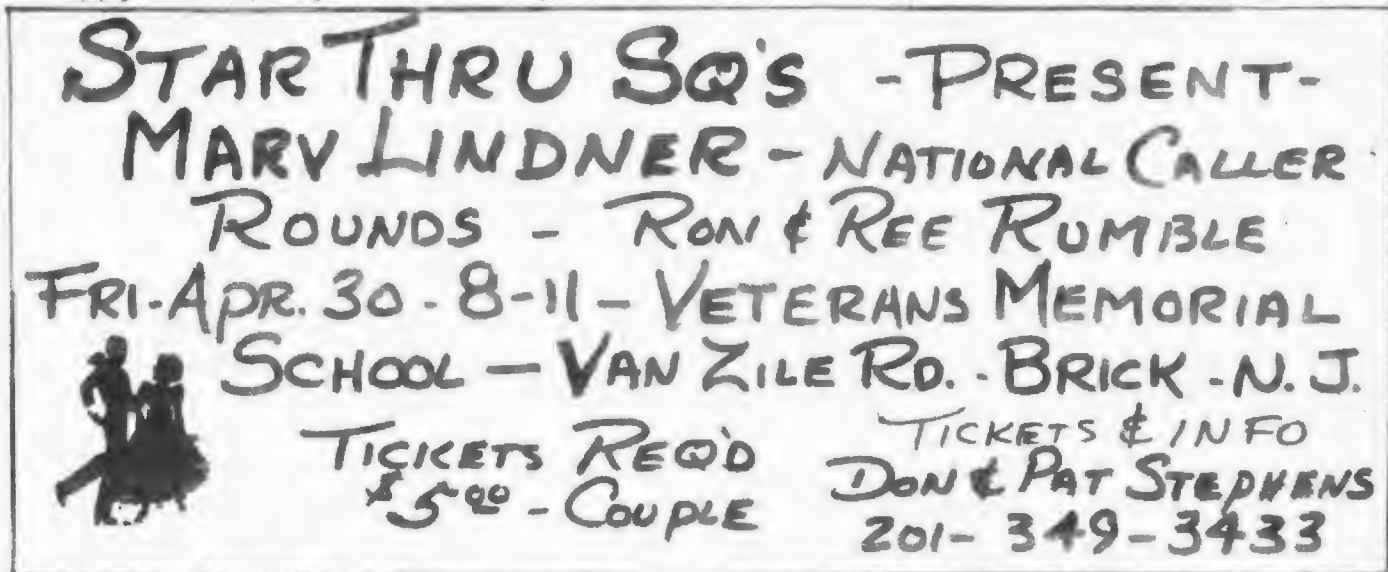 STAR THRU SQ'S - PRESENT-
MARV LINDNER - NATIONAL CALLER
ROUNDS - RON & REE RUMBLE
FRI-APR. 30 - 8-11 - VETERANS MEMORIAL
SCHOOL - VAN ZILE RD. - BRICK - N. J.
TICKETS REQ'D
$5.00 - COUPLE
TICKETS & INFO
DON & PAT STEPHENS
201-349-3433